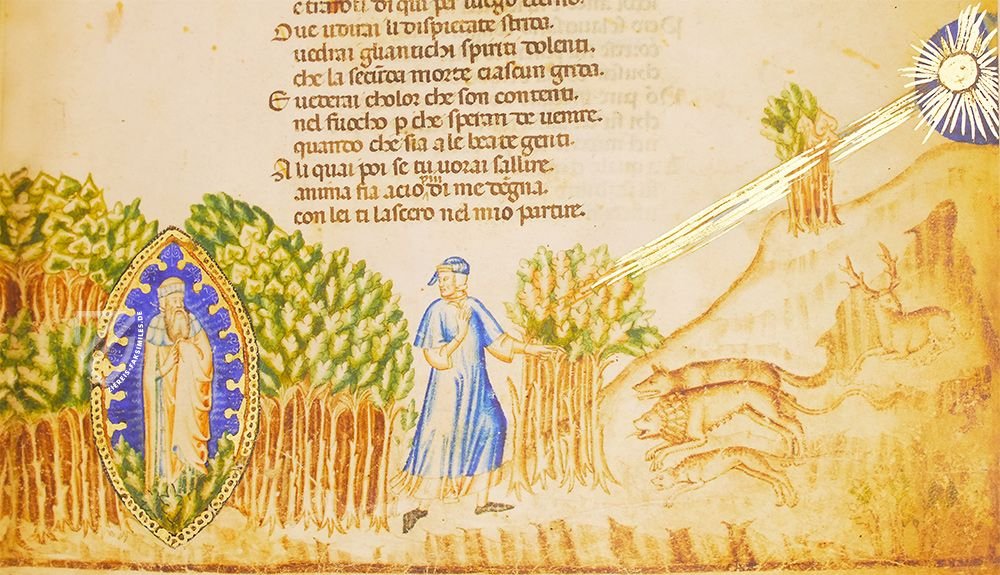 e trarotti di qui per luogo eterno.
Oue udirai li dispietate strida.
uedrai gliantichi spiriti dolenti.
che la secōda morte ciascun grida.
E uederai choloR che son contenti.
nel fuocho p che speran de uenire.
quando che sia a le beate genti.
A li quai poi se tu uorai sallire.
anima fia acio piu di me degna.
con lei ti lascero nel mio partire.
ZIEREIS-FAKSIMILES.DE